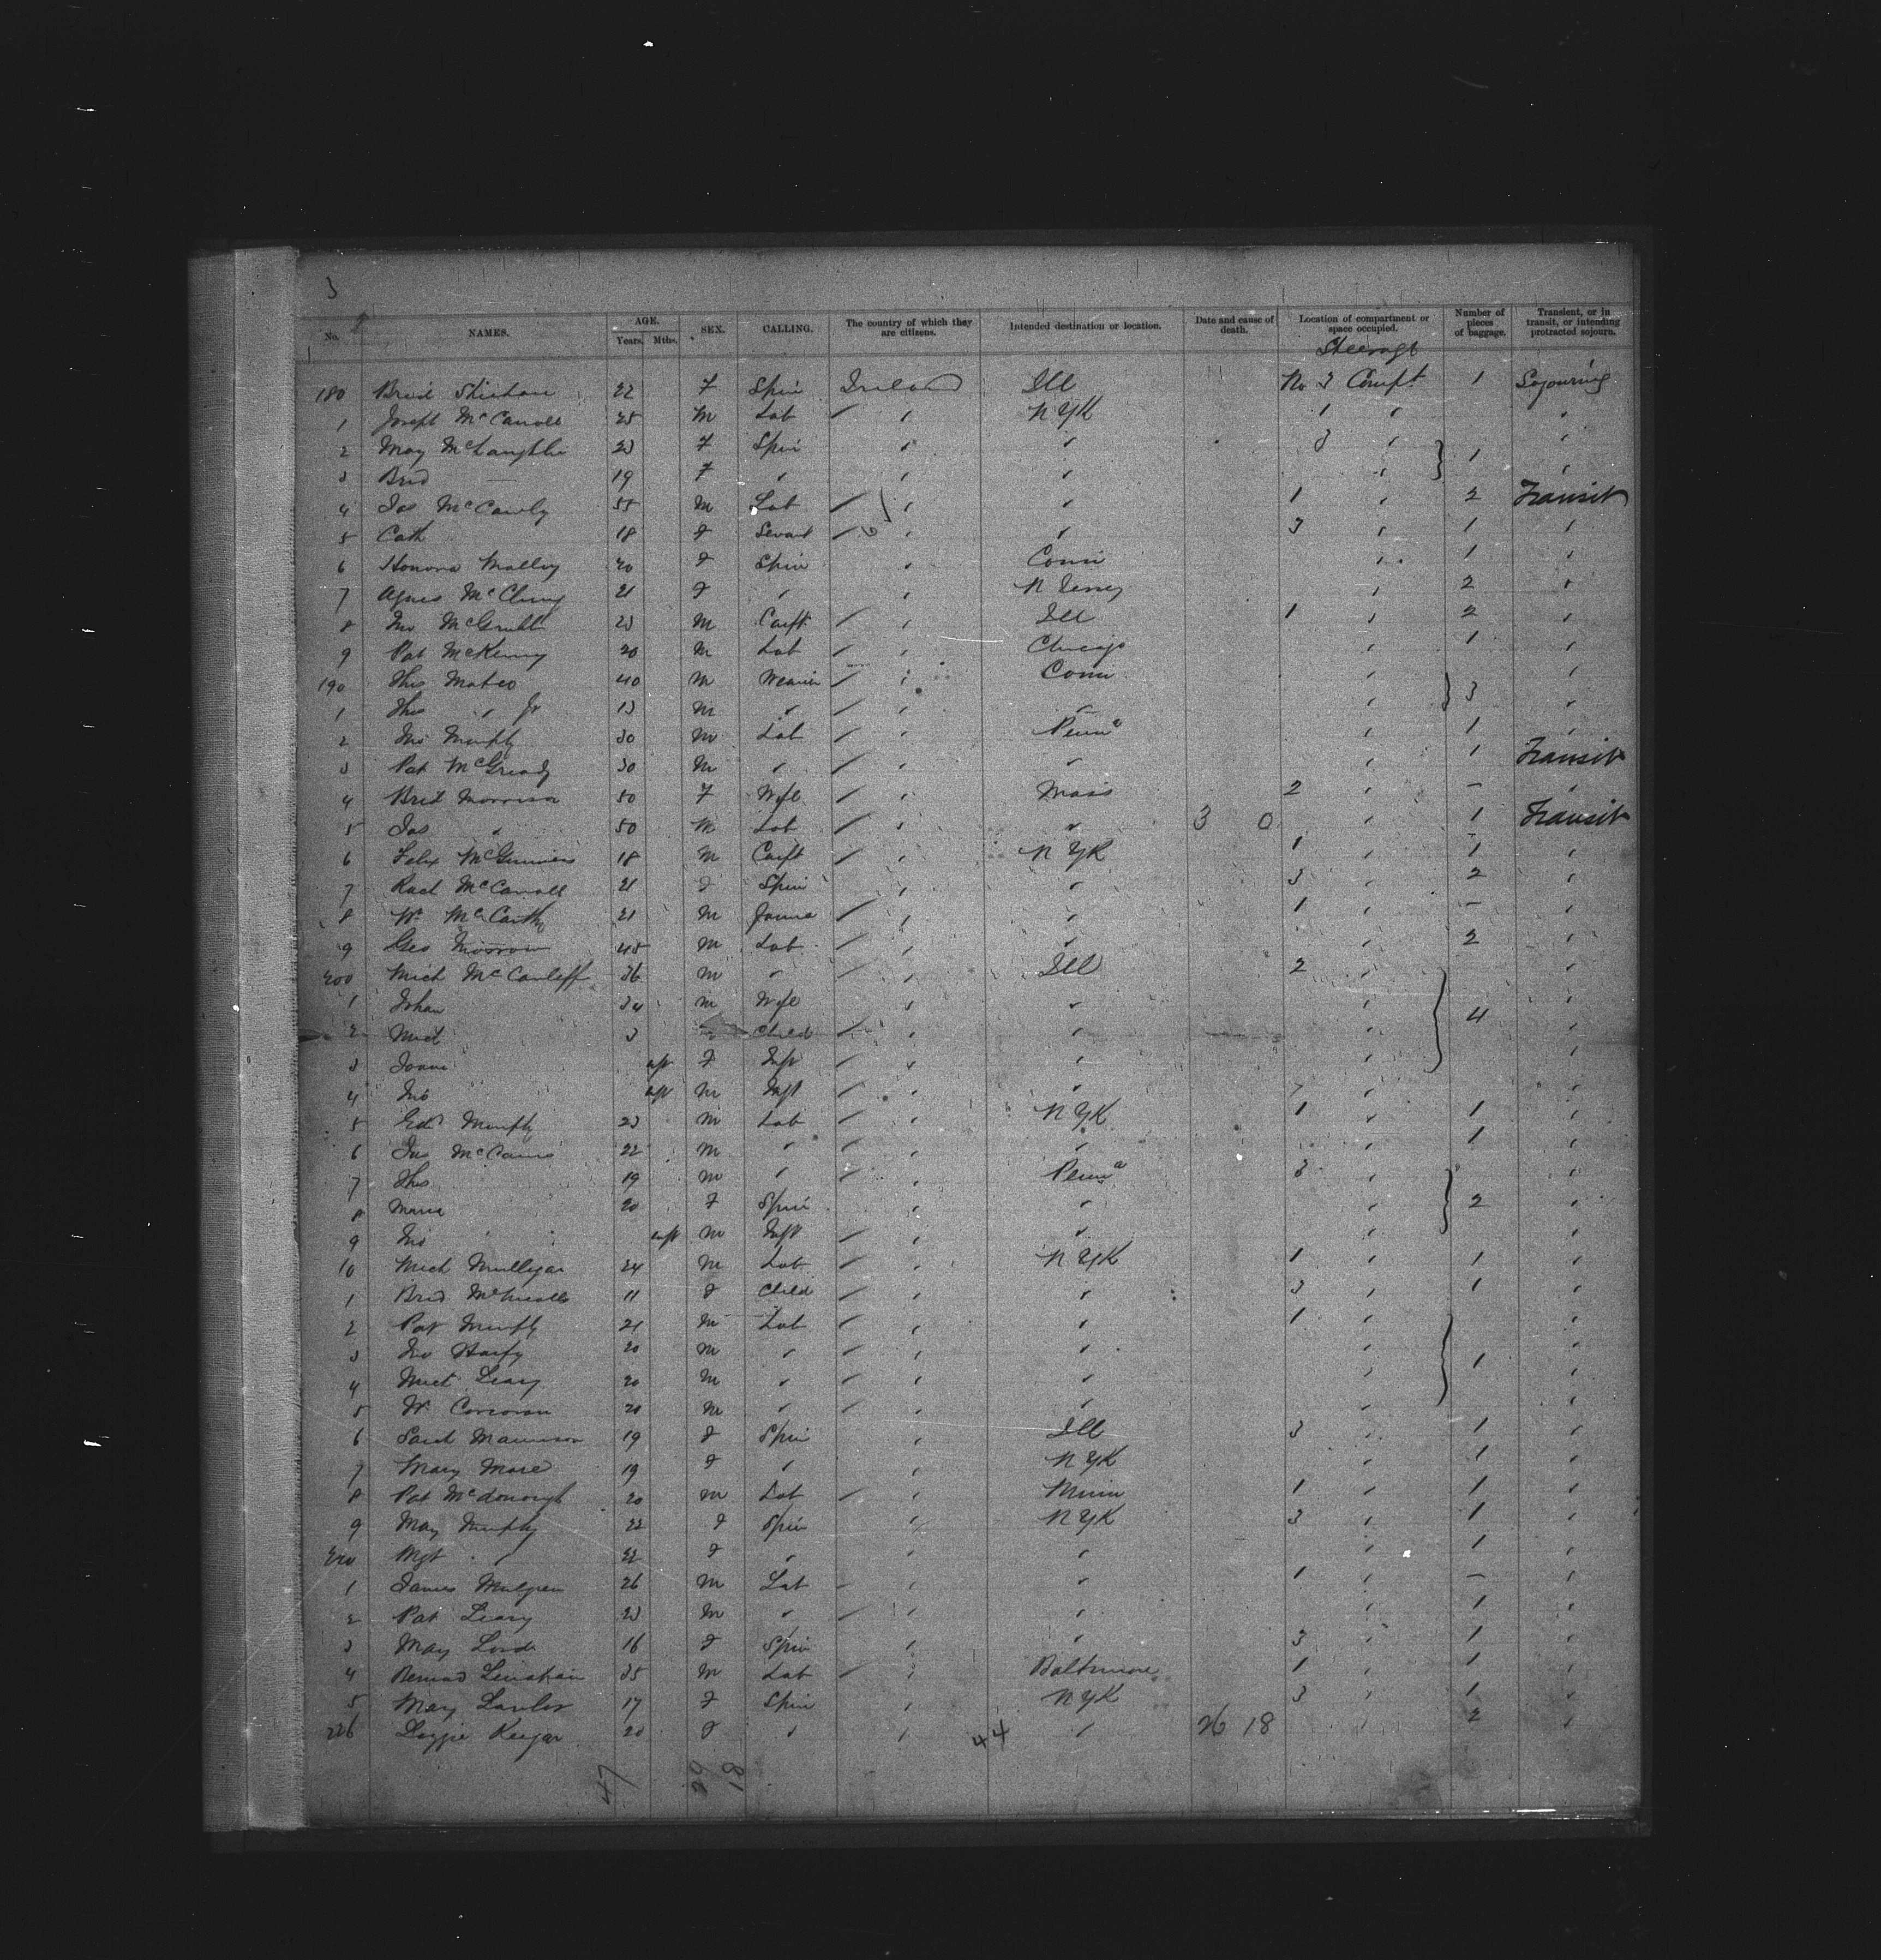 3
No. NAMES. AGE. Years. Mths. SEX. CALLING. The country of which they are citizens. Intended destination or location. Date and cause of death. Location of compartment or space occupied. Number of pieces of baggage. Transient, or in transit, or intending protracted sojourn.
Steerage
180 Brid 22 F Spin Ireland Ill No 3 Compt 1 Sojouring
1 Joseph McCarroll 25 M Lab " N Y K 1 " "
2 May McLaughlin 23 F Spin " " 3 " 1 "
3 Brid — 19 F " " " " "
4 Jas McCawly 55 M Lab " " 1 " 2 Transit
5 Cath 18 F Servant " " 3 " 1 "
6 Honora Malloy 20 F Spin " Conn " 1 "
7 Agnes McClung 21 F " " N Jersey " 2 "
8 Jno 23 M Carpt " Ill 1 " 2 "
9 Pat McKenny 20 M Lab " Chicago " 1 "
190 Thos 40 M Weaver " Conn " 3 "
1 Thos " Jr 13 M " " " " "
2 Jno Murphy 30 M Lab " Penna " 1 "
3 Pat McGready 30 M " " " " 1 Transit
4 Brid Morrison 50 F Wife " Mass 2 " — "
5 Jas " 50 M Lab " " 3 0 " 1 Transit
6 Felix McGinness 18 M Carpt " N Y K 1 " 1 "
7 Rach McCarroll 21 F Spin " " 3 " 2 "
8 Wm McCarthy 21 M " " 1 " — "
9 Geo Morrow 45 M Lab " " " 2 "
200 Mich McCauleff 36 M " " Ill 2 " "
1 Johan 34 M Wife " " " 4 "
2 Mich 3 Child " " " "
3 Joana inft F Inft " " " "
4 Jno inft M Inft " " " "
5 Ed Murphy 23 M Lab " N Y K 1 " 1 "
6 Jas 22 M " " " " 1 "
7 Thos 19 M " " Penna 3 " "
8 Maria 20 F Spin " " " 2 "
9 Jno " inft M Inft " " " "
10 Mich Mulligan 24 M Lab " N Y K 1 " 1 "
1 Brid 11 F Child " " 3 " 1 "
2 Pat Murphy 21 M Lab " " 1 " "
3 Jno 20 M " " " " "
4 Mich Leary 20 M " " " " 1 "
5 Wm Corcoran 20 M " " " " "
6 19 F Spin " Ill 3 " 1 "
7 Mary 19 F " " N Y K " 1 "
8 Pat McDonough 20 M Lab " Minn 1 " 1 "
9 May Murphy 22 F Spin " N Y K 3 " 1 "
220 Mgt " 22 F " " " " 1 "
1 James Mulgrew 26 M Lab " " 1 " — "
2 Pat Leary 23 M " " " " 1 "
3 May Lord 16 F Spin " " 3 " 1 "
4 Bernard Lenahan 35 M Lab " Baltimore 1 " 1 "
5 May Lawlor 17 F Spin " N Y K 3 " 1 "
226 20 F " " 44 " 26 18 " 2 "
47 29 18